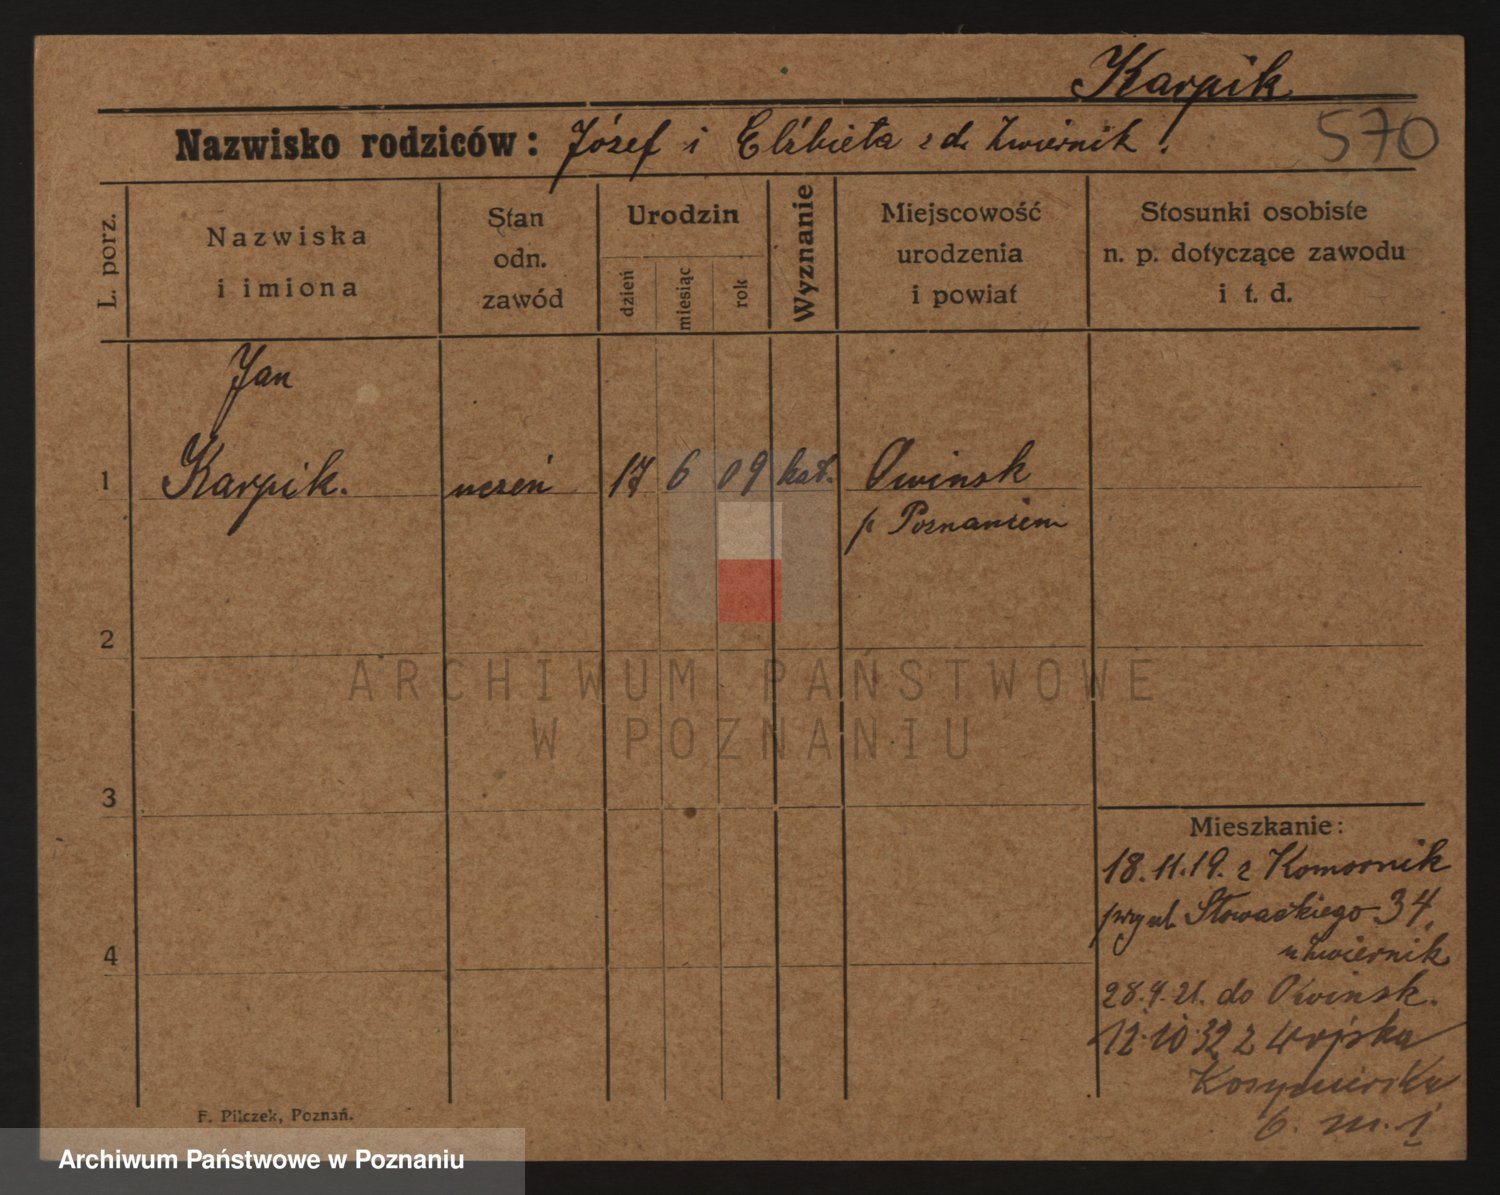 Karpik
Nazwisko rodziców: Józef i Elżbieta z d. Zwiernik!
570
L. porz.
Nazwiska
i imiona
Stan
odn.
zawód
Urodzin
dzień
miesiąc
rok
Wyznanie
Miejscowość
urodzenia
i powiat
Stosunki osobiste
n. p. dotyczące zawodu
i t. d.
Jan
1 Karpik. uczeń 17 6 09 kat. Owinsk
p Poznaniem
2
ARCHIWUM PAŃSTWOWE
W POZNANIU
3
Mieszkanie:
18.11.19. z Komornik
przy ul. Słowackiego 34,
u Zwiernik
4
28.9.21. do Owinsk.
12.10.32 z Wojska
6. m. 1
F. Pilczek, Poznań.
Archiwum Państwowe w Poznaniu